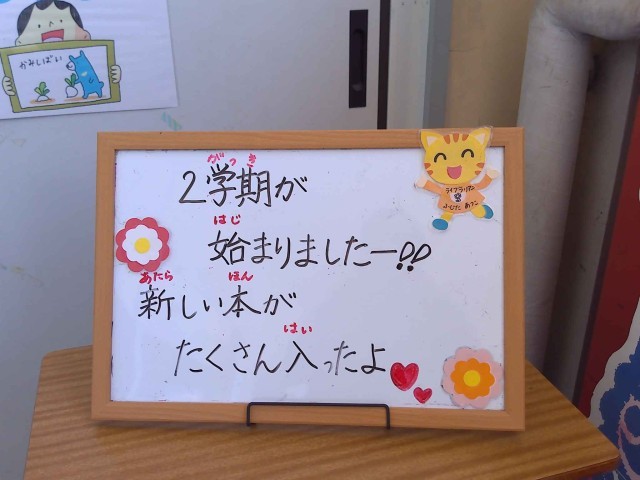 かみしばい
がっき
2学期が
はじ
始まりましたー!!
あたら ほん
新しい本が
はい
たくさん入ったよ
ライブラリアン